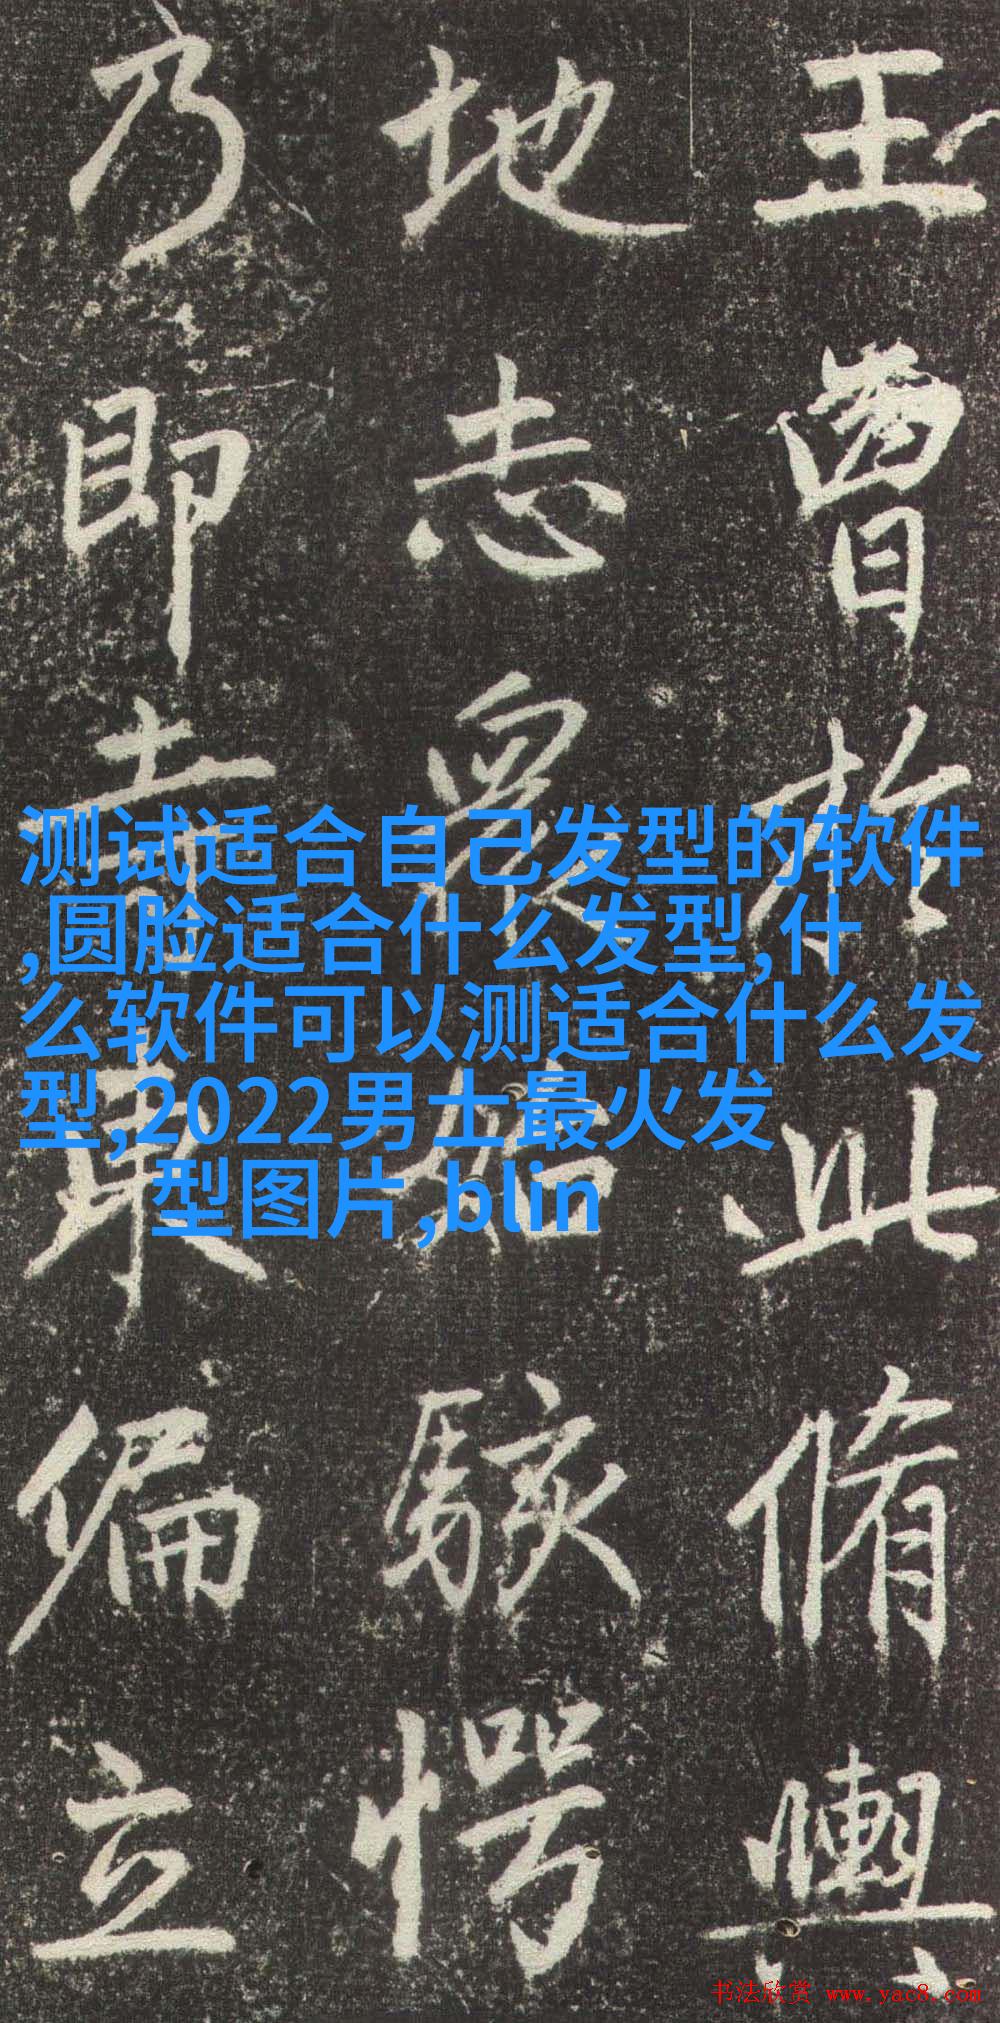 王曹於此脩輿
地志眾始駭愕
乃即東偏立
测试适合自己发型的软件
,圆脸适合什么发型,什
么软件可以测适合什么发
型,2022男士最火发
型图片,blin
书法欣赏 www.yac8.com